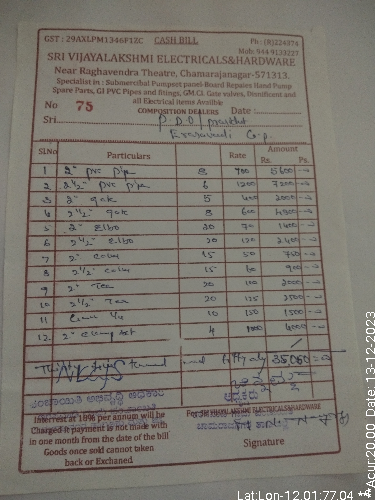 GST : 29AXLPM1346F1ZC CASH BILL Ph : (R)224374
Mob: 944 9133227
SRI VIJAYALAKSHMI ELECTRICALS&HARDWARE
Near Raghavendra Theatre, Chamarajanagar-571313.
Specialist in : Submercibal Pumpset panel-Board Repaires Hand Pump
Spare Parts, GI PVC Pipes and fitings, GM.CI. Gate valves, Domificent and
all Electrical Items Avalible
COMPOSITION DEALERS
No 75 Date :
Sri P.D.O
Sl.No Particulars Rate Amount
Rs. Ps.
1 2" pvc pipe 8 700 5600
2 2½" pvc pipe 6 1200 7200
3 2" 5 400 2000
4 2½" 8 600 4800
5 2" Elbo 20 70 1400
6 2½" Elbo 20 120 2400
7 2" 15 50 750
8 2½" 15 60 900
9 2" Tee 20 100 2000
10 2½" Tee 20 125 2500
11 10 150 1500
12 2" set 4 1000 4000
Thirty five thousand and fifty only 35050
Interest at 18% per annum will be
Charged if payment is not made with
in one month from the date of the bill
Goods once sold cannot taken
back or Exchaned
For SRI VIJAYALAKSHMI ELECTRICALS&HARDWARE
Signature
Lat:Lon-12.01:77.04 **Acur20.00 Date:13-12-2023